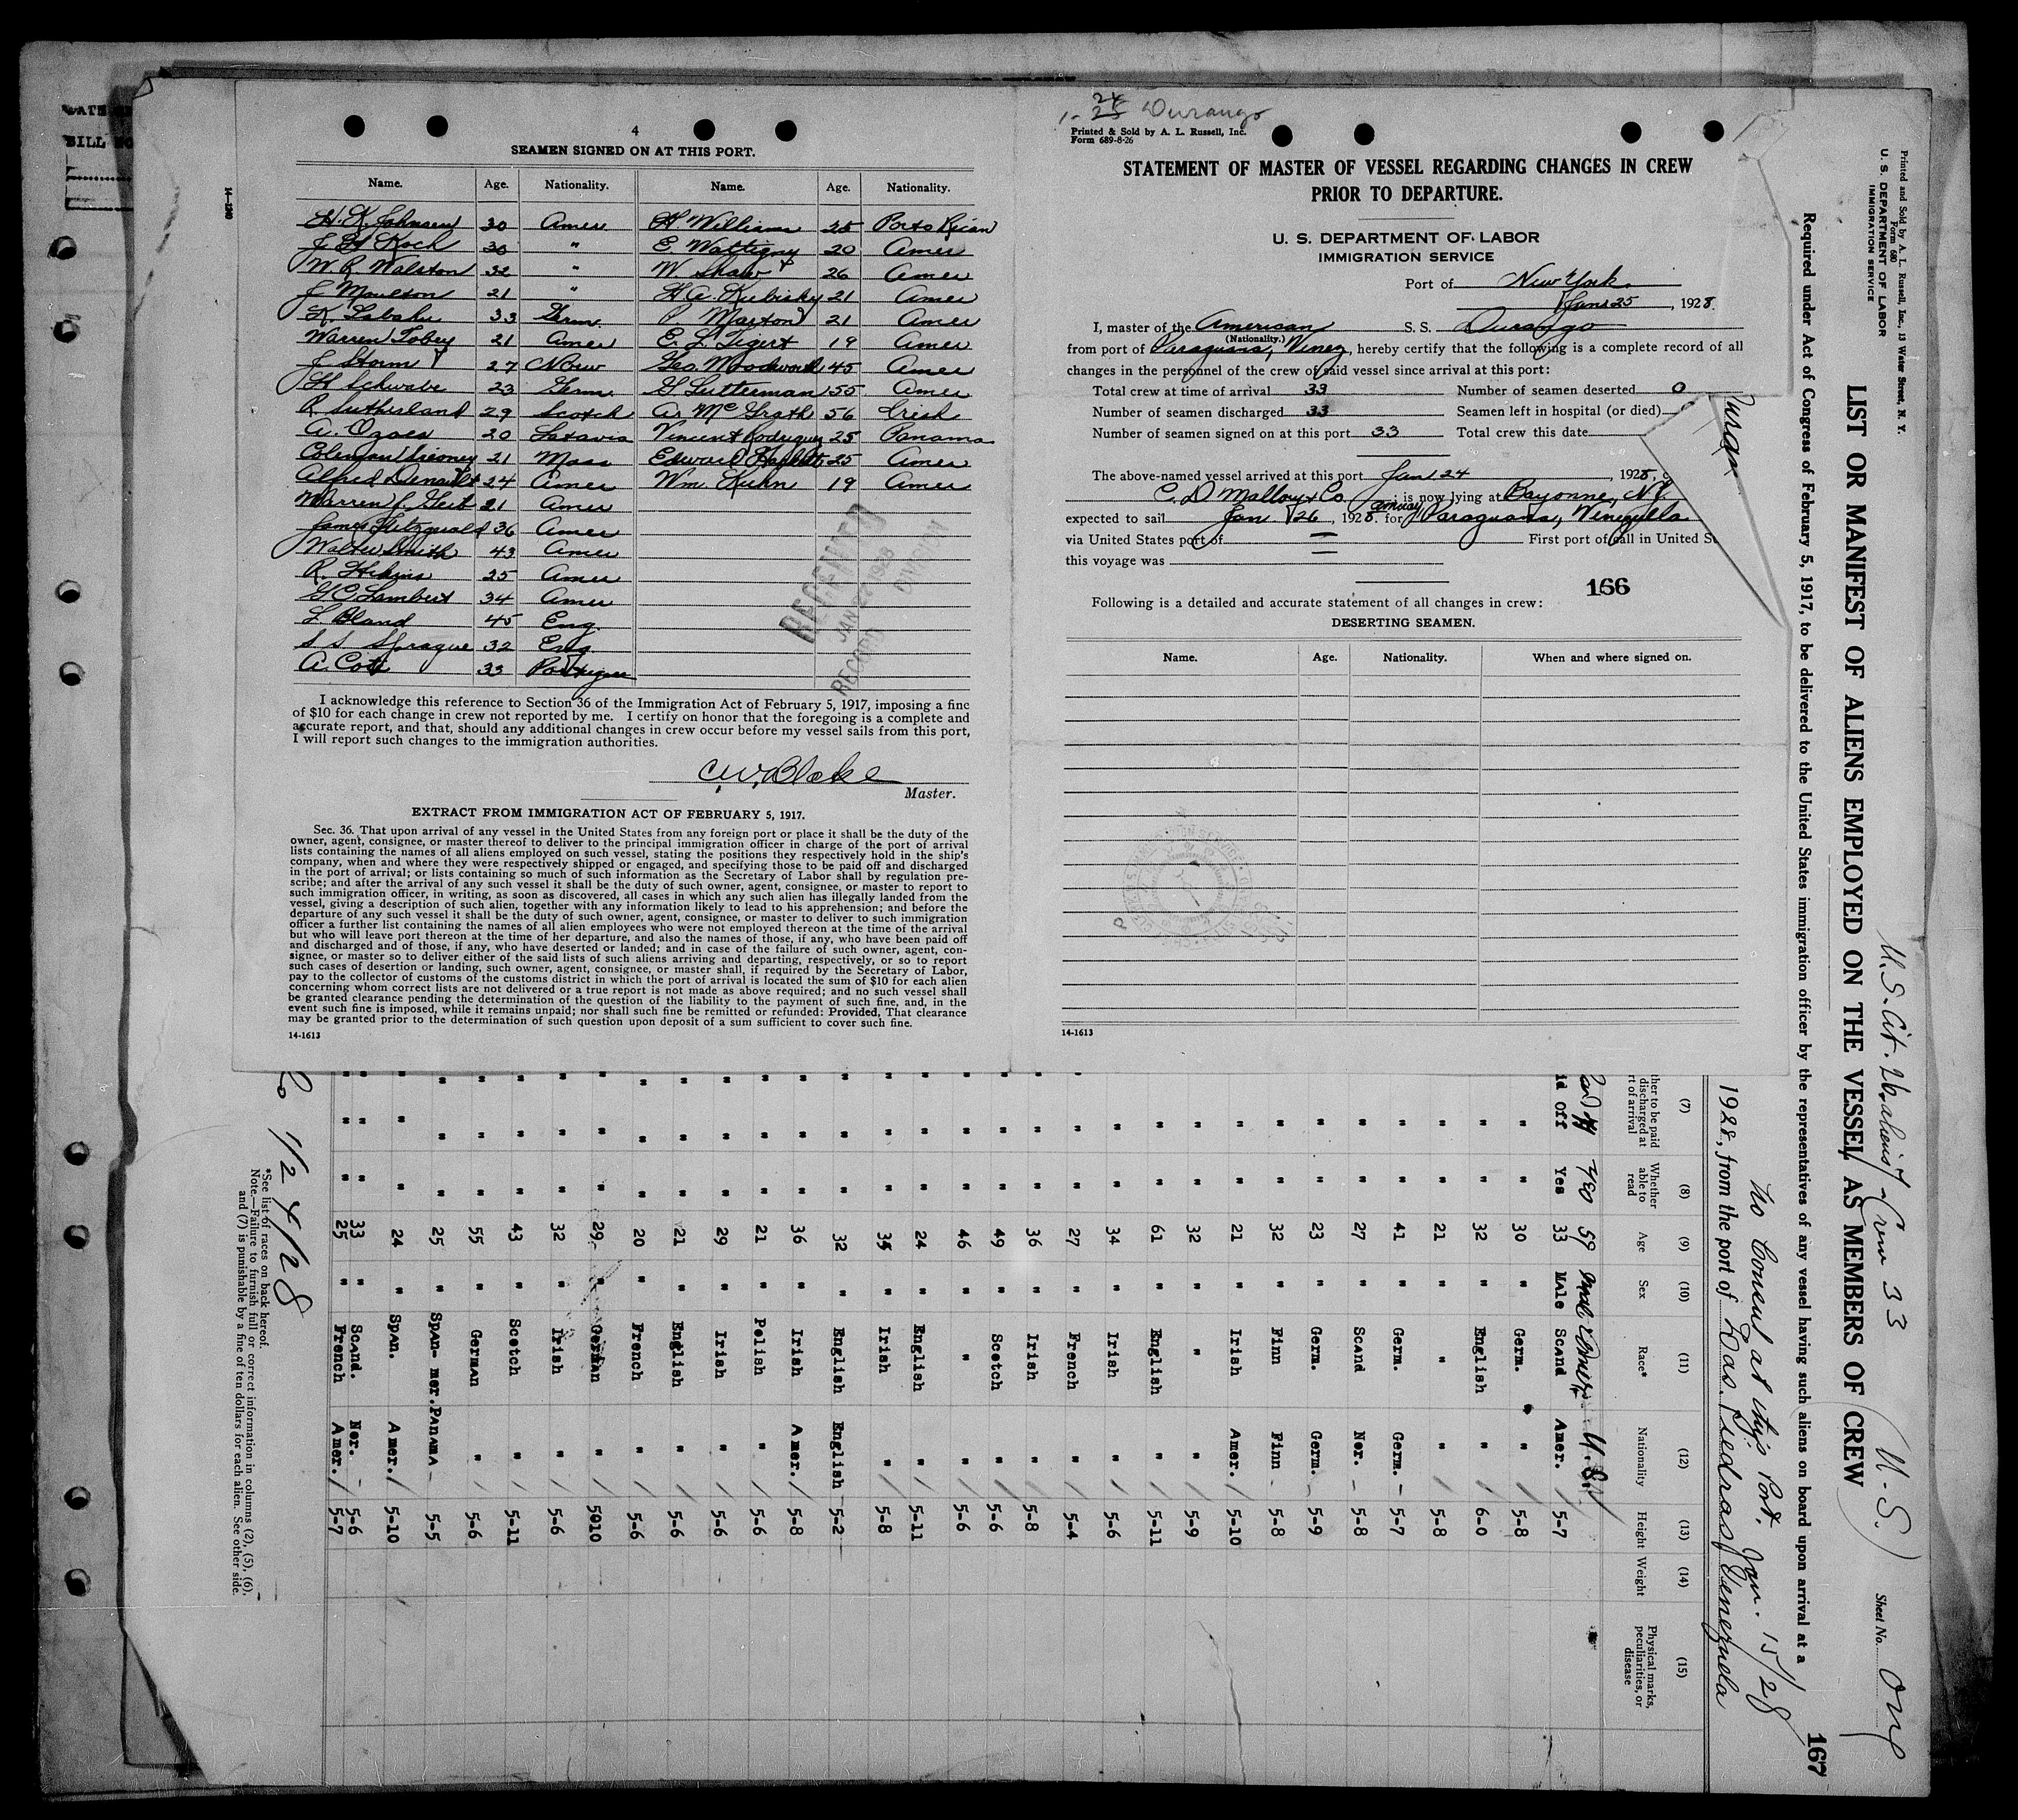 4
SEAMEN SIGNED ON AT THIS PORT.
Name. Age. Nationality. Name. Age. Nationality.
H. K. Johnsen 30 Amer H Williams 25 Porto Rican
J H Koch 30 " E. Waltigny 20 Amer
W. R. Walston 32 " W. Shaw 26 Amer
J Moulton 21 " H. A. Kubisky 21 Amer
K. Labahn 33 Germ. P. Marton 21 Amer
Warren Tobey 21 Amer E. L. Tigert 19 Amer
J. Storm 27 Norw Geo. Woodward 45 Amer
H Schwabe 23 Germ. G Sutterman 55 Amer
R. Sutherland 29 Scotch A. McGrath 56 Irish
A. Ozols 20 Latavia Vincent Rodriguez 25 Panama
Coleman 21 Mass Edward 25 Amer
Alfred 24 Amer Wm. Kuhn 19 Amer
Warren J. Geib 21 Amer
James Fitzgerald 36 Amer
Walter Smith 43 Amer
R. 25 Amer
G. C. Lambert 34 Amer
L. Bland 45 Eng.
S. S. Sprague 32 Eng
A. Coti 33
RECEIVED
JAN 1928
RECORD DIVISION
I acknowledge this reference to Section 36 of the Immigration Act of February 5, 1917, imposing a fine
of $10 for each change in crew not reported by me. I certify on honor that the foregoing is a complete and
accurate report, and that, should any additional changes in crew occur before my vessel sails from this port,
I will report such changes to the immigration authorities.
C. W. Blake
Master.
EXTRACT FROM IMMIGRATION ACT OF FEBRUARY 5, 1917.
Sec. 36. That upon arrival of any vessel in the United States from any foreign port or place it shall be the duty of the
owner, agent, consignee, or master thereof to deliver to the principal immigration officer in charge of the port of arrival
lists containing the names of all aliens employed on such vessel, stating the positions they respectively hold in the ship's
company, when and where they were respectively shipped or engaged, and specifying those to be paid off and discharged
in the port of arrival; or lists containing so much of such information as the Secretary of Labor shall by regulation pre-
scribe; and after the arrival of any such vessel it shall be the duty of such owner, agent, consignee, or master to report to
such immigration officer, in writing, as soon as discovered, all cases in which any such alien has illegally landed from the
vessel, giving a description of such alien, together with any information likely to lead to his apprehension; and before the
departure of any such vessel it shall be the duty of such owner, agent, consignee, or master to deliver to such immigration
officer a further list containing the names of all alien employees who were not employed thereon at the time of the arrival
but who will leave port thereon at the time of her departure, and also the names of those, if any, who have been paid off
and discharged and of those, if any, who have deserted or landed; and in case of the failure of such owner, agent, con-
signee, or master so to deliver either of the said lists of such aliens arriving and departing, respectively, or so to report
such cases of desertion or landing, such owner, agent, consignee, or master shall, if required by the Secretary of Labor,
pay to the collector of customs of the customs district in which the port of arrival is located the sum of $10 for each alien
concerning whom correct lists are not delivered or a true report is not made as above required; and no such vessel shall
be granted clearance pending the determination of the question of the liability to the payment of such fine, and, in the
event such fine is imposed, while it remains unpaid; nor shall such fine be remitted or refunded: Provided, That clearance
may be granted prior to the determination of such question upon deposit of a sum sufficient to cover such fine.
14-1613
1-24 Durango
Printed & Sold by A. L. Russell, Inc.
Form 689-8-26
STATEMENT OF MASTER OF VESSEL REGARDING CHANGES IN CREW
PRIOR TO DEPARTURE.
U. S. DEPARTMENT OF LABOR
IMMIGRATION SERVICE
Port of New York
Jan 25, 1928.
I, master of the American S. S. Durango
(Nationality.)
from port of Paraguana, Venez, hereby certify that the following is a complete record of all
changes in the personnel of the crew of said vessel since arrival at this port:
Total crew at time of arrival 33 Number of seamen deserted 0
Number of seamen discharged 33 Seamen left in hospital (or died)
Number of seamen signed on at this port 33 Total crew this date
The above-named vessel arrived at this port Jan 24, 1928,
C. D Mallory & Co; is now lying at Bayonne, N.J.
expected to sail Jan 26, 1928. for Paraguana, Venezuella
via United States port of First port of call in United
this voyage was
166
Following is a detailed and accurate statement of all changes in crew:
DESERTING SEAMEN.
Name. Age. Nationality. When and where signed on.
14-1613
Printed and Sold by A. L. Russell, Inc., 13 Water Street, N. Y.
Form 680
U. S. DEPARTMENT OF LABOR
IMMIGRATION SERVICE
U.S. Cit. 26 aliens 7 Crew 33
(U.S.)
Sheet No. One
LIST OR MANIFEST OF ALIENS EMPLOYED ON THE VESSEL AS MEMBERS OF CREW
Required under Act of Congress of February 5, 1917, to be delivered to the United States immigration officer by the representatives of any vessel having such aliens on board upon arrival at a
167
No Consul at this Port. Jan. 15/28
1928, from the port of Las Piedras, Venezuela
(7) (8) (9) (10) (11) (12) (13) (14) (15)
Whether able to read Age Sex Race* Nationality Height Weight Physical marks, peculiarities, or disease
Yes 59 Male U.S.
id Off Yes 33 Male Scand Amer. 5-7
" " 30 " Germ. " 5-8
" " 32 " English " 6-0
" " 21 " " " 5-8
" " 41 " Germ. Germ. 5-7
" " 27 " Scand Nor. 5-8
" " 23 " Germ. Germ. 5-9
" " 32 " Finn Finn 5-8
" " 21 " Irish Amer. 5-10
" " 32 " " " 5-9
" " 61 " English " 5-11
" " 34 " Irish " 5-6
" " 27 " French " 5-4
" " 36 " Irish " 5-8
" " 49 " Scotch " 5-6
" " 46 " " " 5-6
" " 24 " English " 5-11
" " " Irish " 5-8
" " 32 " English English 5-2
" " 36 " Irish Amer. 5-8
" " 21 " Polish " 5-6
" " 29 " Irish " 5-6
" " 21 " English " 5-6
" " 20 " French " 5-6
" " 29 " German " 5010
" " 32 " Irish " 5-6
" " 43 " Scotch " 5-11
" " 55 " German " 5-6
" " 25 " Span- mer. Panama 5-5
" " 24 " Span. Amer. 5-10
" " 33 " Scand. Nor. 5-6
" " 25 " French Amer. 5-7
1/24/28
*See list of races on back hereof.
Note.—Failure to furnish full or correct information in columns (2), (5), (6),
and (7) is punishable by a fine of ten dollars for each alien. See other side.
14-1240